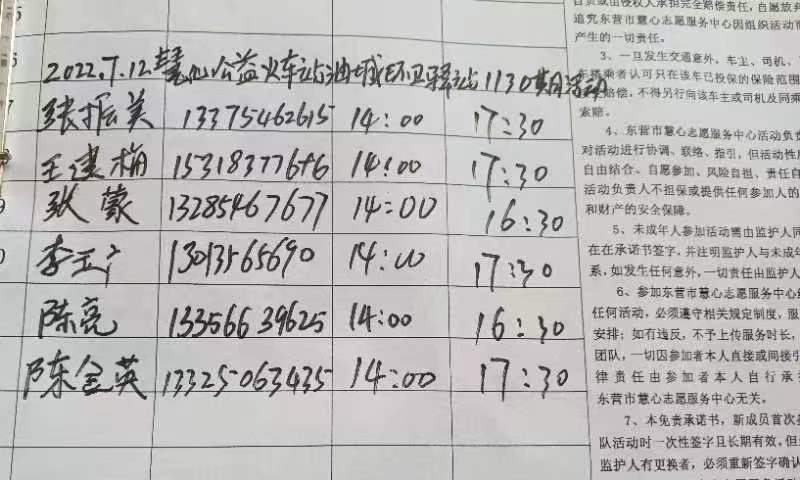 2022.7.12慧心公益火车站油城环卫驿站1130期活动
张振美 13375462615 14:00 17:30
王建梅 14:00 17:30
张蒙 13285467677 14:00 16:30
李玉广 13013565690 14:00 17:30
陈亮 13356639625 14:00 16:30
陈金英 13325063435 14:00 17:30
责或由侵权人承担完全赔偿责任,自愿放弃
追究东营市慧心志愿服务中心因组织活动而
产生的一切责任。
3、一旦发生交通意外,车主、司机、
乘者认可只在该车已投保的保险范围
赔偿,不得另行向该车主或司机及同乘
索赔。
4、东营市慧心志愿服务中心活动负责
对活动进行协调、联络、指引,但活动性质
自由结合、自愿参加、风险自担、责任自
活动负责人不担保或提供任何参加人的
和财产的安全保障。
5、未成年人参加活动需由监护人同
在在承诺书签字,并注明监护人与未成年
系,如发生任何意外,一切责任由监护人
6、参加东营市慧心志愿服务中心组
任何活动,必须遵守相关规定制度,服
安排;如有违反,不予上传服务时长,
团队,一切因参加者本人直接或间接引
律责任由参加者本人自行承担
东营市慧心志愿服务中心无关。
7、本免责承诺书,新成员首次参
队活动时一次性签字且长期有效,但
监护人有更换者,必须重新签字确认